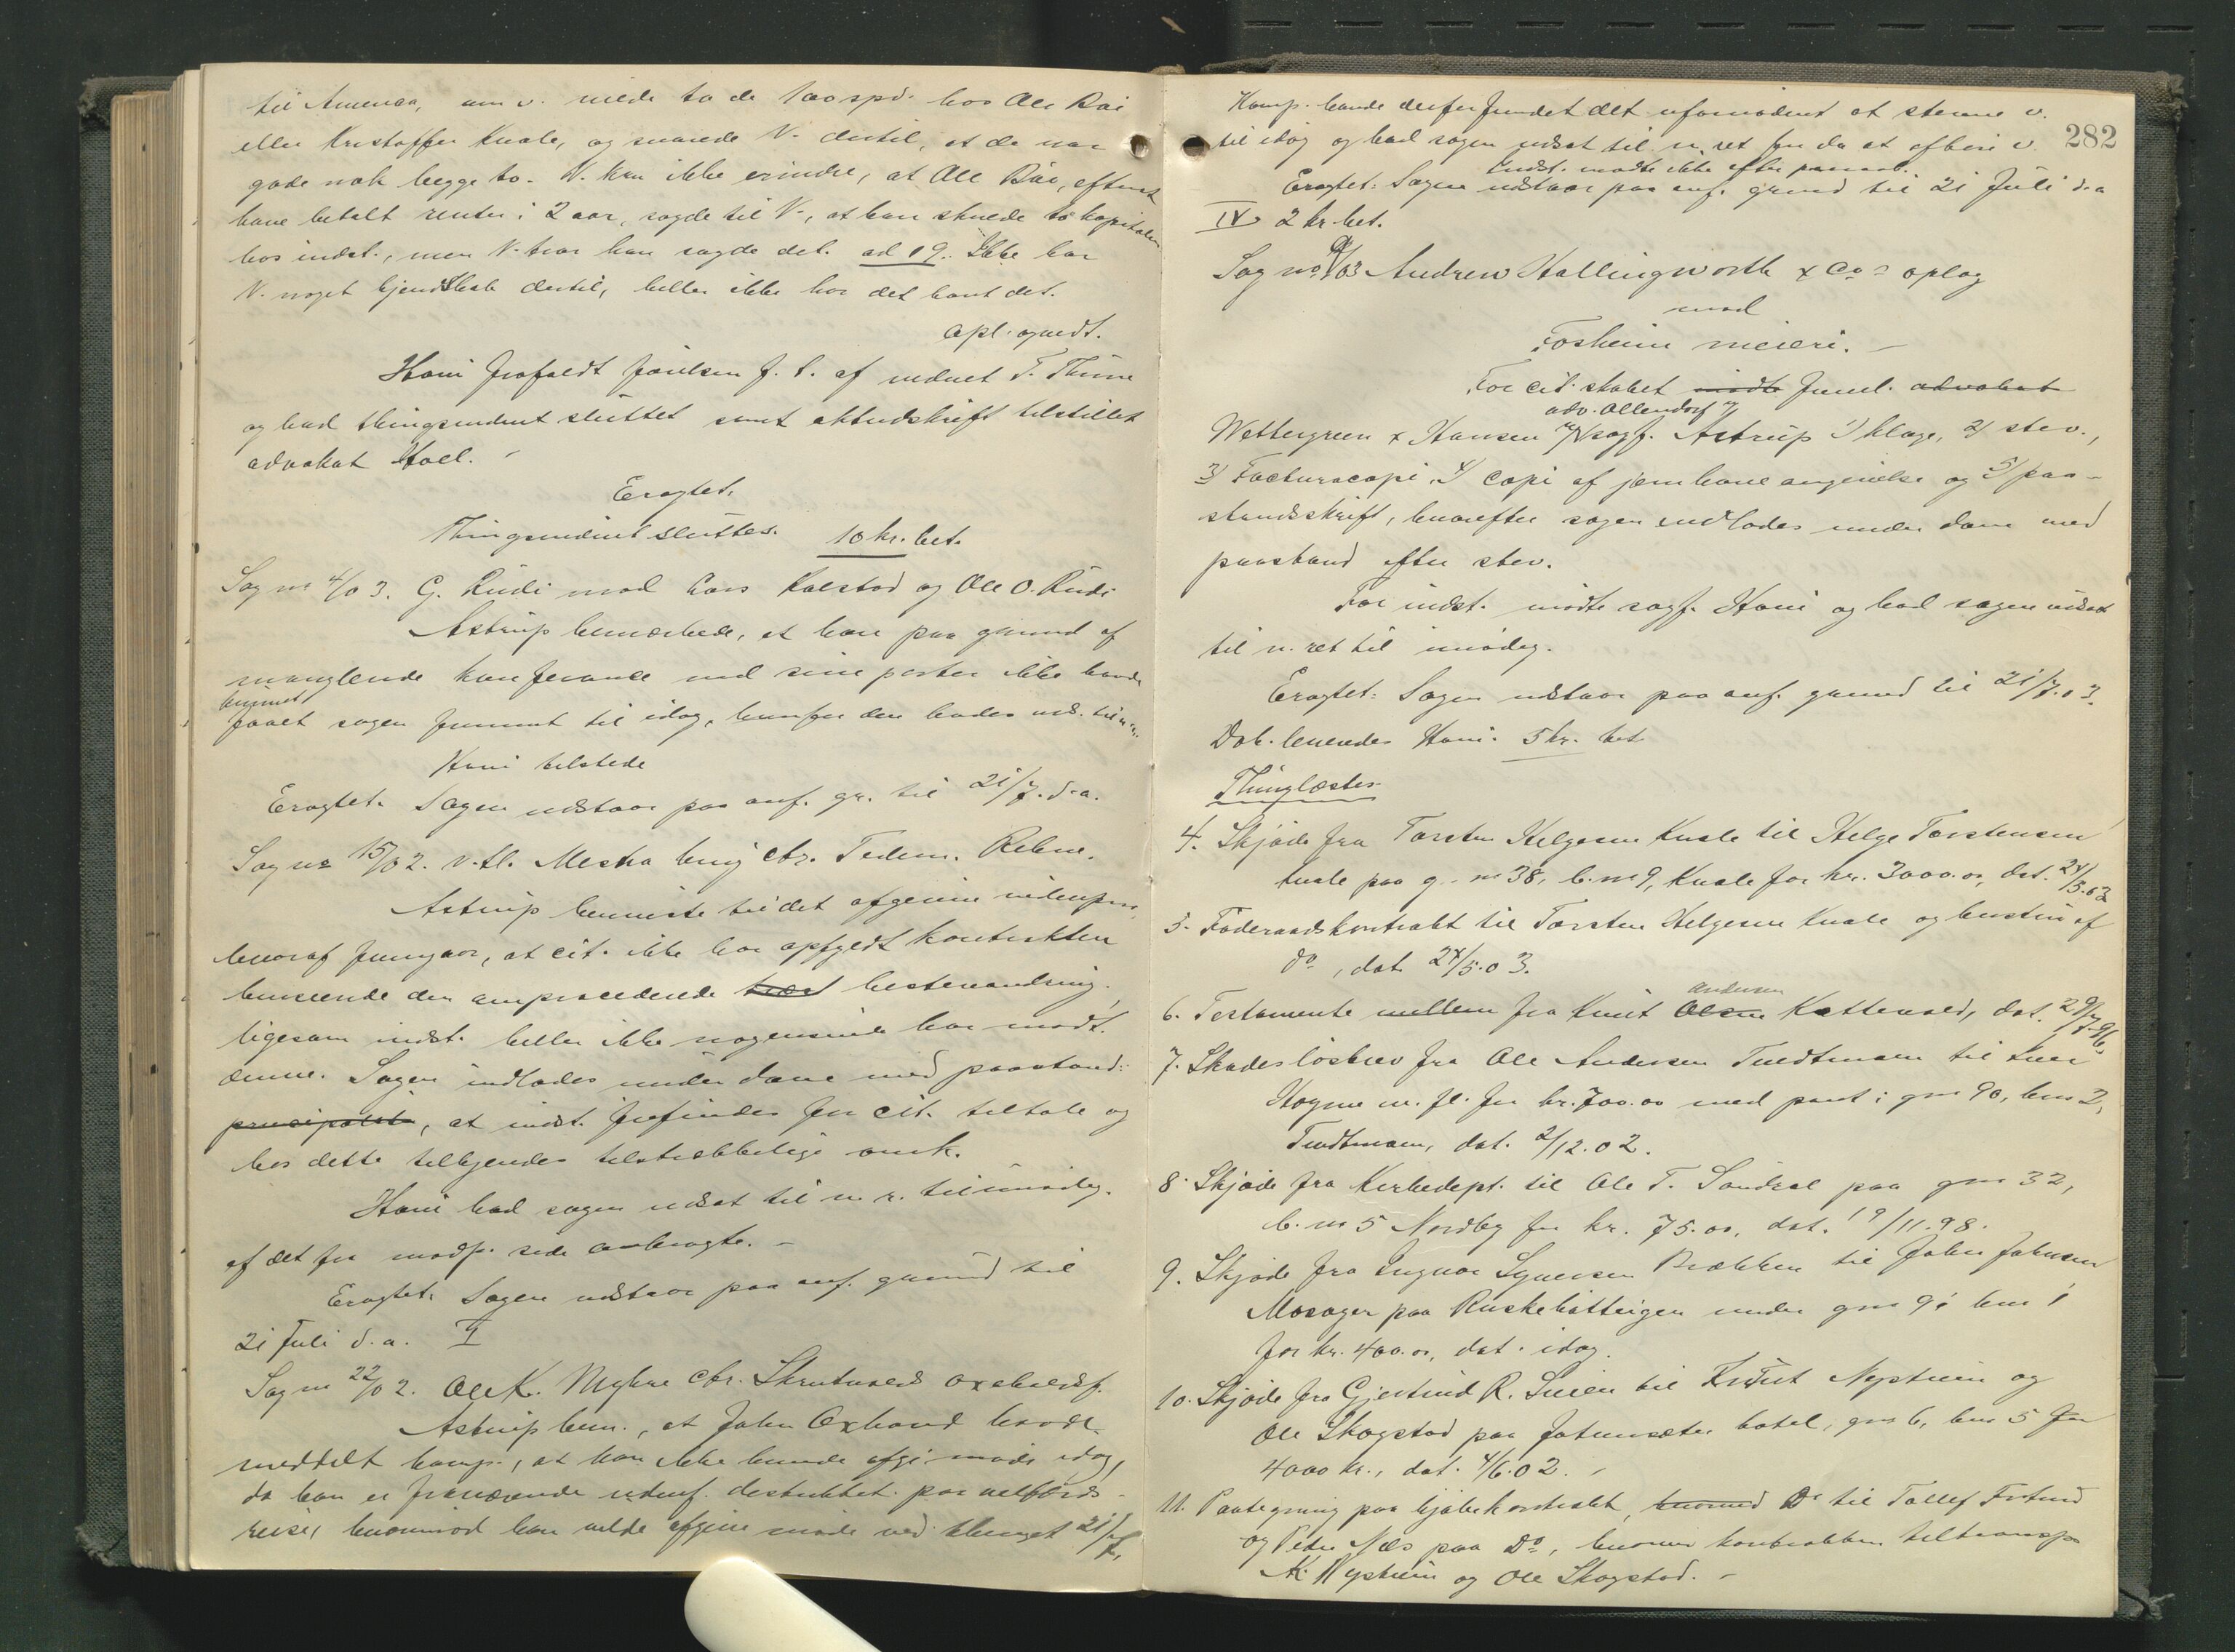 til Amerika, om v. vilde ta de 100 spd. hos Ole Bøe
eller Kristoffer Kvale, og svarede V. dertil, at de var
gode nok begge to. V. kan ikke erindre, at Ole Bøe, efterat
have betalt renter i 2 aar, sagde til V., at han skulde ta kapitalen
hos indst., men V. tror han sagde det. ad 19. Ikke har
V. noget kjendskab dertil, heller ikke har det hørt det.
Opl. og vedt.
Hove frafaldt f. t. af vidnet T. Thune
og bad thingsvidnet sluttet samt aktudskrift tilstillet
advokat Hoel. -
Eragtet.
Thingsvidnet sluttes. 10 kr. bet.
Sag no 4/03. G. Rudi mod Lars Kalstad og Ole O. Rudi
Astrup bemærkede, at han paa grund af
manglende konferance med sine parter ikke havde
kunnet
faaet sagen fremmet til idag, hvorfor den bades uds. til n. r.
Hove tilstede
Eragtet. Sagen udstaar paa anf. gr. til 21/7. d. a.
Sag no 15/02. v. tl. Mesna brug ctr. Tidem. Rebne.
Astrup henviste til det afgivne vidnepr.
hvoraf fremgaar, at cit. ikke har opfyldt kontrakten
henseende den omprocederede hestevandring.
ligesom indst. heller ikke nogensinde har modt.
denne. Sagen indlades under dom med paastand:
principalt, at indst. frifindes for cit. tiltale og
hos dette tilkjendes tilstrækkelige omk.
Hove bad sagen udsat til n. r. til imødeg.
af det fra modp. side anbragte. -
Eragtet. Sagen udstaar paa anf. grund til
21 Juli d. a.
Sag no 22/02. Ole K. Myhre ctr. Skrutvold oxeholdsf.
Astrup bem., at John Oxhovd havde
meddelt komp., at han ikke kunde afgi møde idag,
da han er fraværende udenf. destriktet paa velfærds-
reise, hvorimod han vilde afgive møde ved thinget 21/7,
282
Komp. havde derfor fundet det ufornødent at stevne v.
til idag og bad sagen udsat til n. ret for da at afhøre v.
Indst. mødte ikke efter paaraab.
Eragtet: Sagen udstaar paa anf. grund til 21 Juli d. a
IV 2 kr. bet.
Sag no 9/03 Andrew Hallingworth & Co's oplag
mod
Fosheim meieri. -
For cit. skabet mødte fuldm. advokat
adv. Ollendorf v/
Wettergreen & Hansen v/ sagf. Astrup 1) klage, 2) stev.,
3) Facturacopi, 4) Copi af jernbane angivelse og 5) paa-
standsskrift, hvorefter sagen indlades under dom med
paastand efter stev.
For indst. mødte sagf. Hove og bad sagen udsat
til n. ret til imødeg.
Eragtet: Sagen udstaar paa anf. grund til 21/7.03.
Dok. leveredes Hove. 5 kr. bet
Thinglæstes
4. Skjøde fra Torsten Helgesen Kvale til Helge Torstensen
Kvale paa g. no 38, b. no 9, Kvale for kr. 3000.00, dat. 24/5.03
5. Føderaadskontrakt til Torsten Helgesen Kvale og hustru af
do, dat 24/5.03.
Andersen
6. Testamente mellem fra Knut Olsen Kattevold, dat. 29/7.96
7. Skadesløsbrev fra Ole Andersen Tvedtmoen til Iver
Hogne m. fl. for kr. 700.00 med pant i gno 90, bno 2,
Tvedtmoen, dat. 2/12.02.
8. Skjøde fra Kirkedept. til Ole T. Sandsal paa gno 32,
b. no 5 Nordby for kr. 75.00, dat. 19/11.98.
9. Skjøde fra Ingvar Syversen Brækken til John Johnsen
Mosager paa Ruskebitteigen under gno 91 bno 1
for kr. 400.00, dat. idag.
10. Skjøde fra Gjertrud R. Lueen til Knut Nystuen og
Ole Skogstad paa Jotunsæter hotel, gno 6, bno 5 for
4000 kr., dat. 4/6.02. -
11. Paategning paa kjøbekontrakt, hvorved Do til Tollef Fortund
og Peder Næs paa Do, hvorved kontrakten tiltransp.
K. Nystuen og Ole Skogstad. -